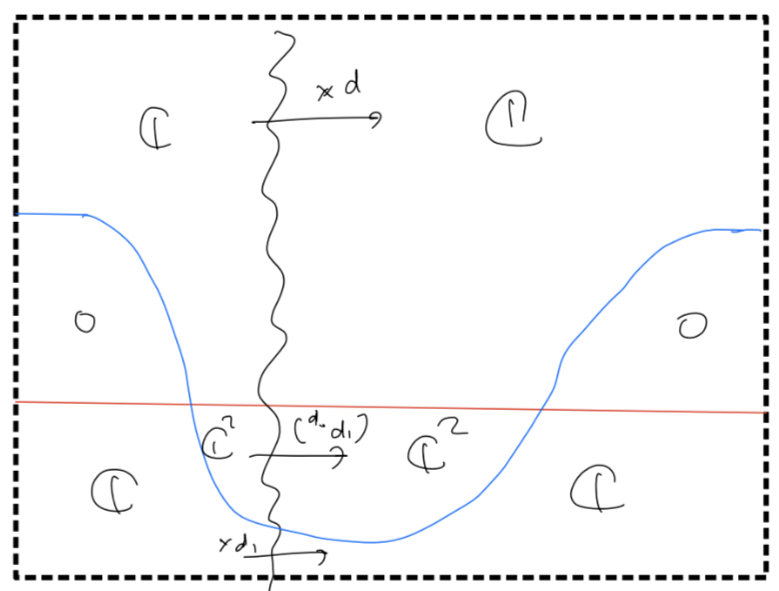 × d
ℂ ℂ
0 0
ℂ² (d d₁) ℂ²
ℂ ℂ
×d₁